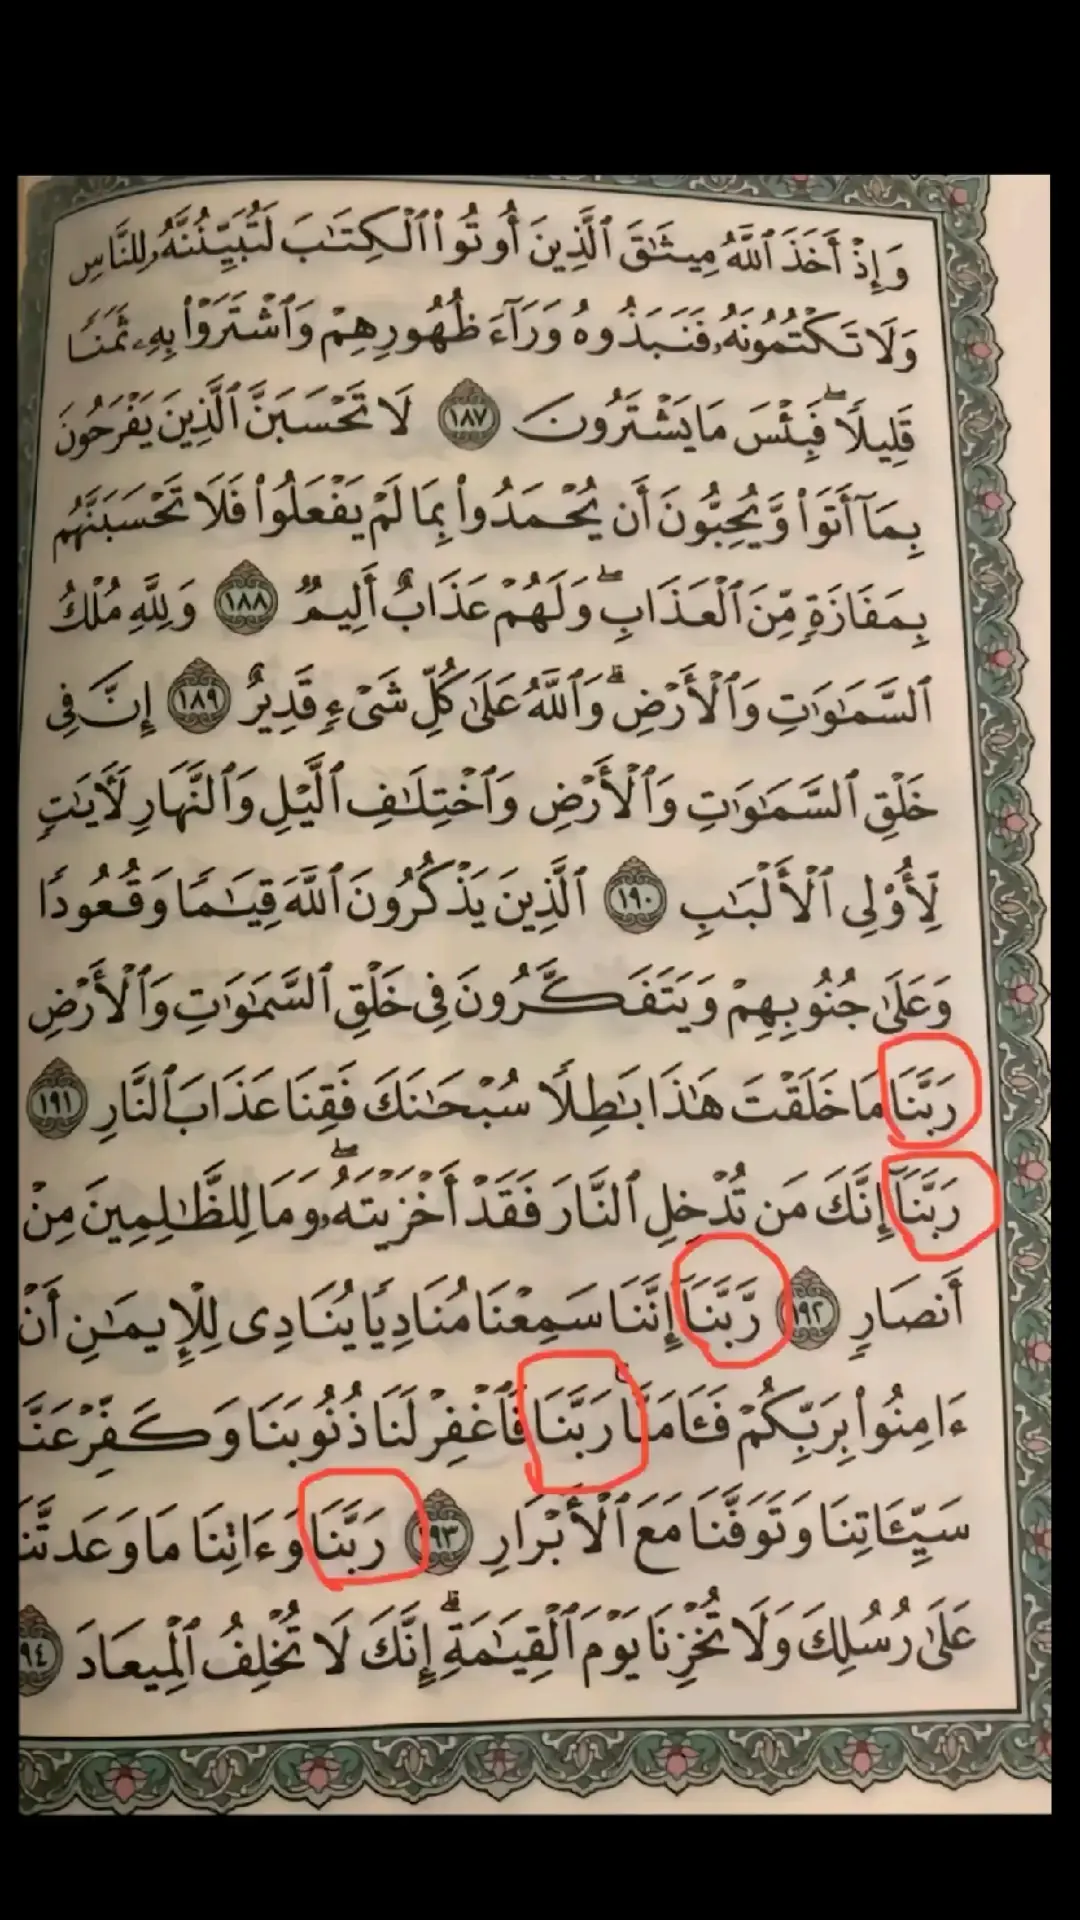 وَإِذْ أَخَذَ ٱللَّهُ مِيثَٰقَ ٱلَّذِينَ أُوتُوا۟ ٱلْكِتَٰبَ لَتُبَيِّنُنَّهُۥ لِلنَّاسِ
وَلَا تَكْتُمُونَهُۥ فَنَبَذُوهُ وَرَآءَ ظُهُورِهِمْ وَٱشْتَرَوْا۟ بِهِۦ ثَمَنًا
قَلِيلًا ۖ فَبِئْسَ مَا يَشْتَرُونَ ١٨٧ لَا تَحْسَبَنَّ ٱلَّذِينَ يَفْرَحُونَ
بِمَآ أَتَوا۟ وَّيُحِبُّونَ أَن يُحْمَدُوا۟ بِمَا لَمْ يَفْعَلُوا۟ فَلَا تَحْسَبَنَّهُم
بِمَفَازَةٍ مِّنَ ٱلْعَذَابِ ۖ وَلَهُمْ عَذَابٌ أَلِيمٌ ١٨٨ وَلِلَّهِ مُلْكُ
ٱلسَّمَٰوَٰتِ وَٱلْأَرْضِ ۗ وَٱللَّهُ عَلَىٰ كُلِّ شَىْءٍ قَدِيرٌ ١٨٩ إِنَّ فِى
خَلْقِ ٱلسَّمَٰوَٰتِ وَٱلْأَرْضِ وَٱخْتِلَٰفِ ٱلَّيْلِ وَٱلنَّهَارِ لَءَايَٰتٍ
لِّأُو۟لِى ٱلْأَلْبَٰبِ ١٩٠ ٱلَّذِينَ يَذْكُرُونَ ٱللَّهَ قِيَٰمًا وَقُعُودًا
وَعَلَىٰ جُنُوبِهِمْ وَيَتَفَكَّرُونَ فِى خَلْقِ ٱلسَّمَٰوَٰتِ وَٱلْأَرْضِ
رَبَّنَا مَا خَلَقْتَ هَٰذَا بَٰطِلًا سُبْحَٰنَكَ فَقِنَا عَذَابَ ٱلنَّارِ ١٩١
رَبَّنَآ إِنَّكَ مَن تُدْخِلِ ٱلنَّارَ فَقَدْ أَخْزَيْتَهُۥ ۖ وَمَا لِلظَّٰلِمِينَ مِنْ
أَنصَارٍ ١٩٢ رَّبَّنَآ إِنَّنَا سَمِعْنَا مُنَادِيًا يُنَادِى لِلْإِيمَٰنِ أَنْ
ءَامِنُوا۟ بِرَبِّكُمْ فَـَٔامَنَّا ۚ رَبَّنَا فَٱغْفِرْ لَنَا ذُنُوبَنَا وَكَفِّرْ عَنَّا
سَيِّـَٔاتِنَا وَتَوَفَّنَا مَعَ ٱلْأَبْرَارِ ١٩٣ رَبَّنَا وَءَاتِنَا مَا وَعَدتَّنَا
عَلَىٰ رُسُلِكَ وَلَا تُخْزِنَا يَوْمَ ٱلْقِيَٰمَةِ ۗ إِنَّكَ لَا تُخْلِفُ ٱلْمِيعَادَ ١٩٤